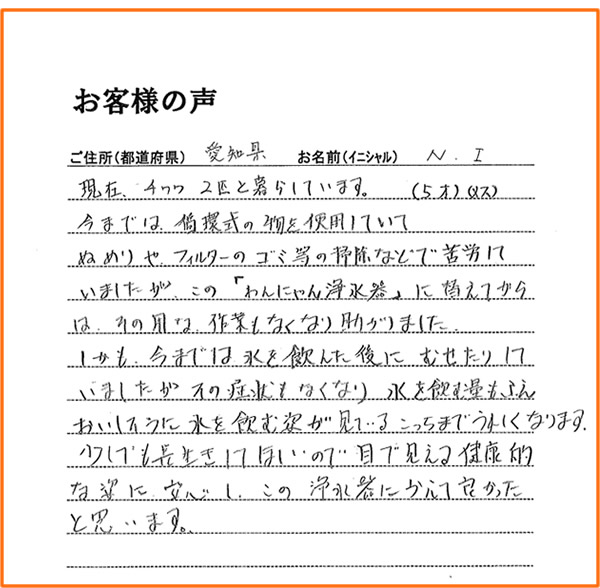 お客様の声
ご住所(都道府県) 愛知県 お名前(イニシャル) N.I
現在、チワワ2匹と暮らしています。(5才)(メス)
今までは、循環式の物を使用していて
ぬめりや、フィルターのゴミ等の掃除などで苦労して
いましたが、この「わんにゃん浄水器」に替えてから
は、その用な、作業もなくなり助かりました。
しかも、今までは水を飲んだ後に むせたりして
いましたが その症状もなくなり 水を飲む量もふえ
おいしそうに水を飲む姿が見ているこっちまでうれしくなります。
少しでも長生きしてほしいので目で見える健康的
な姿に 安心し、この浄水器にかえて良かった
と思います。